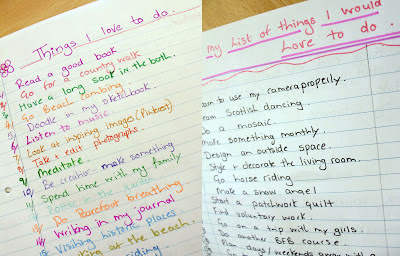 Things I love to do.
1/ Read a good book
2/ Go for a country walk
3/ Have a long soak in the bath.
4/ Go Beach combing
5/ Doodle in my sketchbook.
6/ Listen to music.
7/ Look at inspiring images (Pinterest)
8/ Take & edit photographs.
9/ Meditate.
10/ Be creative - make something
11/ Spend time with my family
in the garden
13/ Do Barefoot breathing
14/ Writing in my journal
15/ Visiting historic places.
at the beach.
riding
my List of things I would
Love to do.
to use my camera properly.
Scottish dancing
Do a mosaic.
Make something monthly.
Design an outside space.
Style & decorate the living room.
Go horse riding
Make a snow angel
Start a patchwork quilt
Find voluntary work.
Go on a trip with my girls.
Do another BFB course.
Plan days / weekends away with a